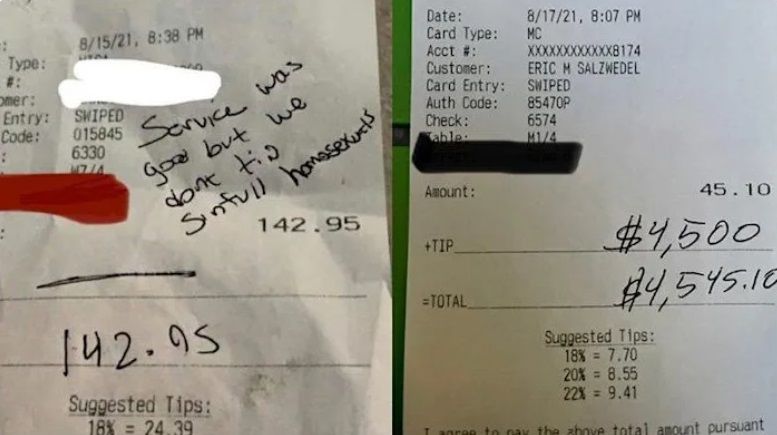 : 8/15/21, 8:38 PM
Type:
#:
omer:
Entry: SWIPED
Code: 015845
: 6330
Service was
good but we
dont tip
sinfull homosexuals
142.95
142.95
Suggested Tips:
18% = 24.39
Date: 8/17/21, 8:07 PM
Card Type: MC
Acct #: XXXXXXXXXXXX8174
Customer: ERIC M SALZWEDEL
Card Entry: SWIPED
Auth Code: 85470P
Check: 6574
Table: M1/4
Amount: 45.10
+TIP $4,500
=TOTAL $4,545.10
Suggested Tips:
18% = 7.70
20% = 8.55
22% = 9.41
I agree to pay the above total amount pursuant